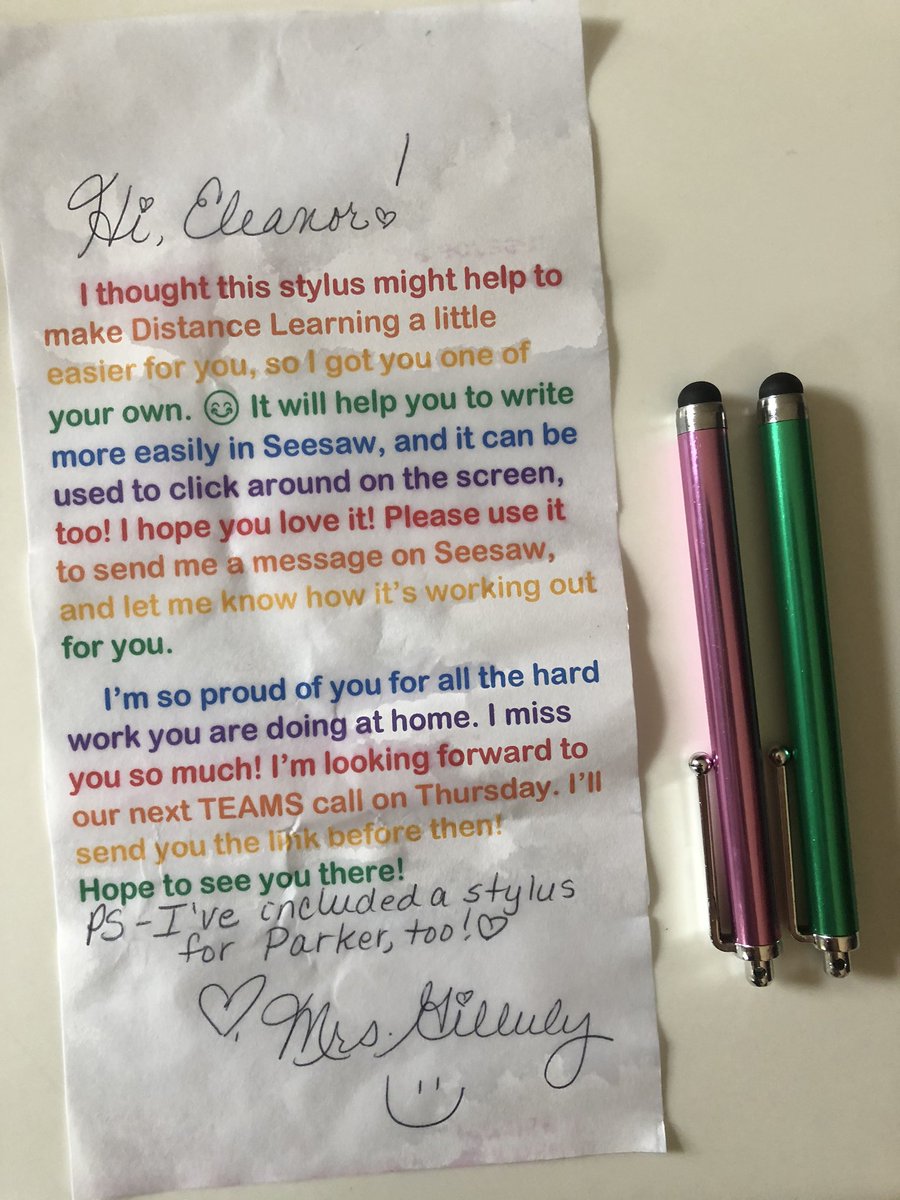 Hi, Eleanor!
I thought this stylus might help to
make Distance Learning a little
easier for you, so I got you one of
your own. 😊 It will help you to write
more easily in Seesaw, and it can be
used to click around on the screen,
too! I hope you love it! Please use it
to send me a message on Seesaw,
and let me know how it's working out
for you.
I'm so proud of you for all the hard
work you are doing at home. I miss
you so much! I'm looking forward to
our next TEAMS call on Thursday. I'll
send you the link before then!
Hope to see you there!
PS-I've included a stylus
for Parker, too!♡
♡, Mrs. Gilluly